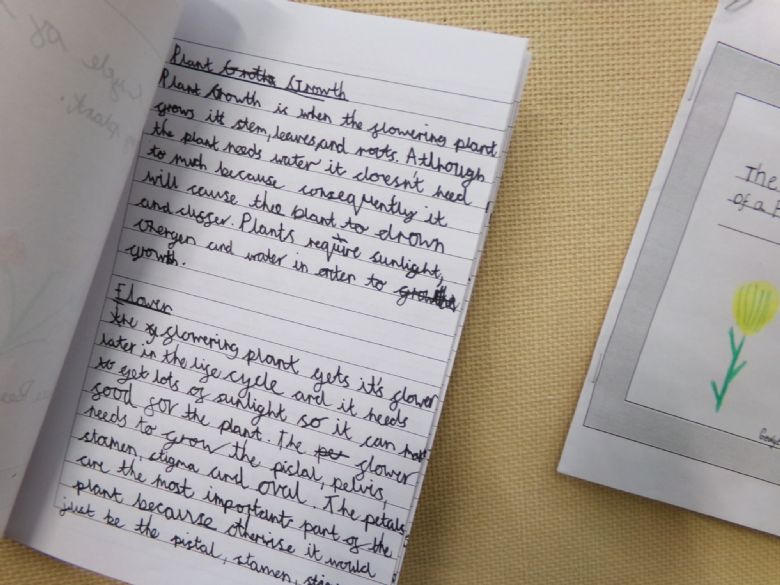 Plant Growth Growth
Plant Growth is when the flowering plant
grows it's stem, leaves, and roots. Athough
the plant needs water it doesn't need
to much because consequently it
will cause the plant to drown
and suffer. Plants require sunlight,
oxergen and water in order to
growth.
Flower
The flowering plant gets it's flower
later in the life cycle and it needs
to get lots of sunlight so it can
good for the plant. The flower
needs to grow the pistal, pelvis,
stamen, stigma and oval. The petals
are the most important part of the
plant because otherwise it would
just be the pistal, stamen,
The
of a